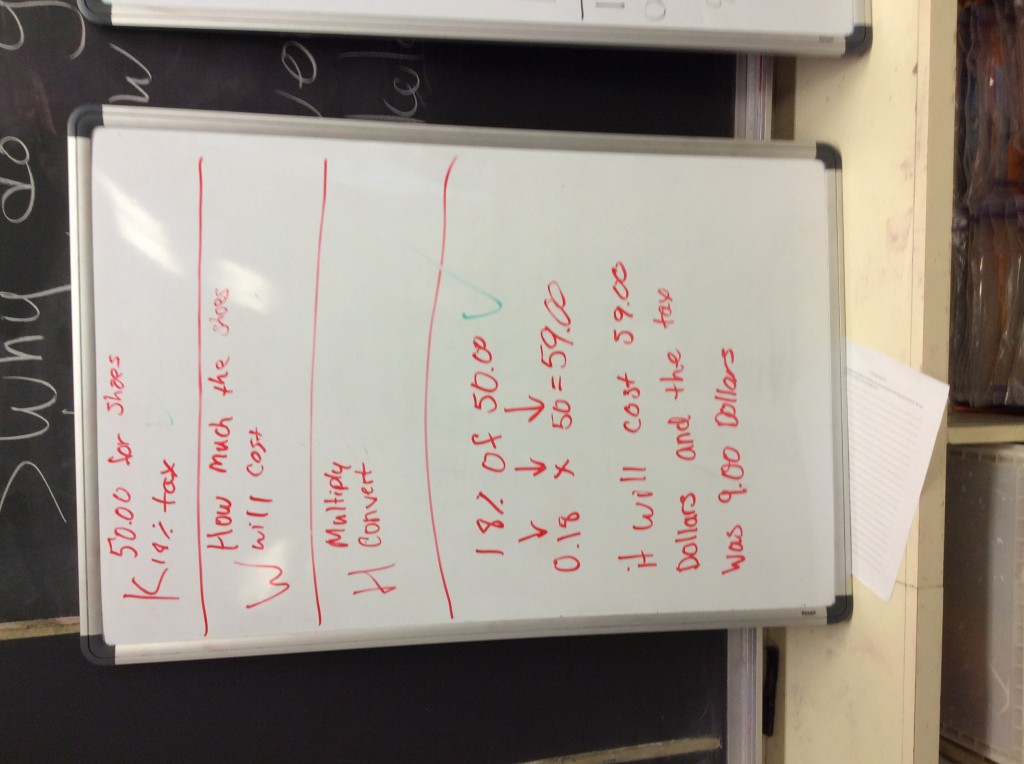 50.00 for shoes
K 19% tax
How much the shoes
W will cost
Multiply
H Convert
18% of 50.00 ✓
↓ ↓ ↓
0.18 x 50 = 59.00
it will cost 59.00
Dollars and the tax
Was 9.00 Dollars
Why do